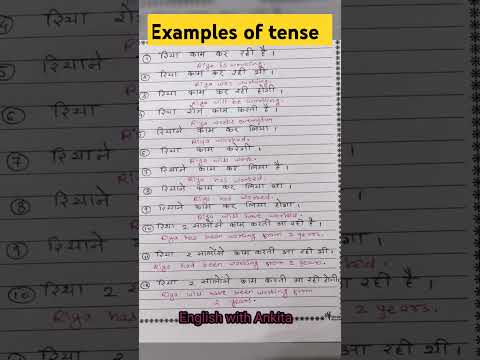 Examples of tense
① रिया काम कर रही है ।
Riya is working.
② रिया काम कर रही थी ।
Riya was working.
③ रिया काम कर रही होगी ।
Riya will be working.
④ रिया रोज काम करती है ।
Riya works everyday
⑤ रियाने काम कर लिया ।
Riya worked.
⑥ रिया काम करेगी ।
Riya will work.
⑦ रियाने काम कर लिया है ।
Riya has worked.
⑧ रियाने काम कर लिया था ।
Riya had worked.
⑨ रियाने काम कर लिया होगा ।
Riya will have worked.
⑩ रिया 2 सालोंसे काम करती आ रही है ।
Riya has been working from 2 years.
रिया 2 सालोंसे काम करती आ रही थी ।
Riya had been working from 2 years.
रिया 2 सालोंसे काम करती आ रही होगी
Riya will have been working from
2 years.
English with Ankita